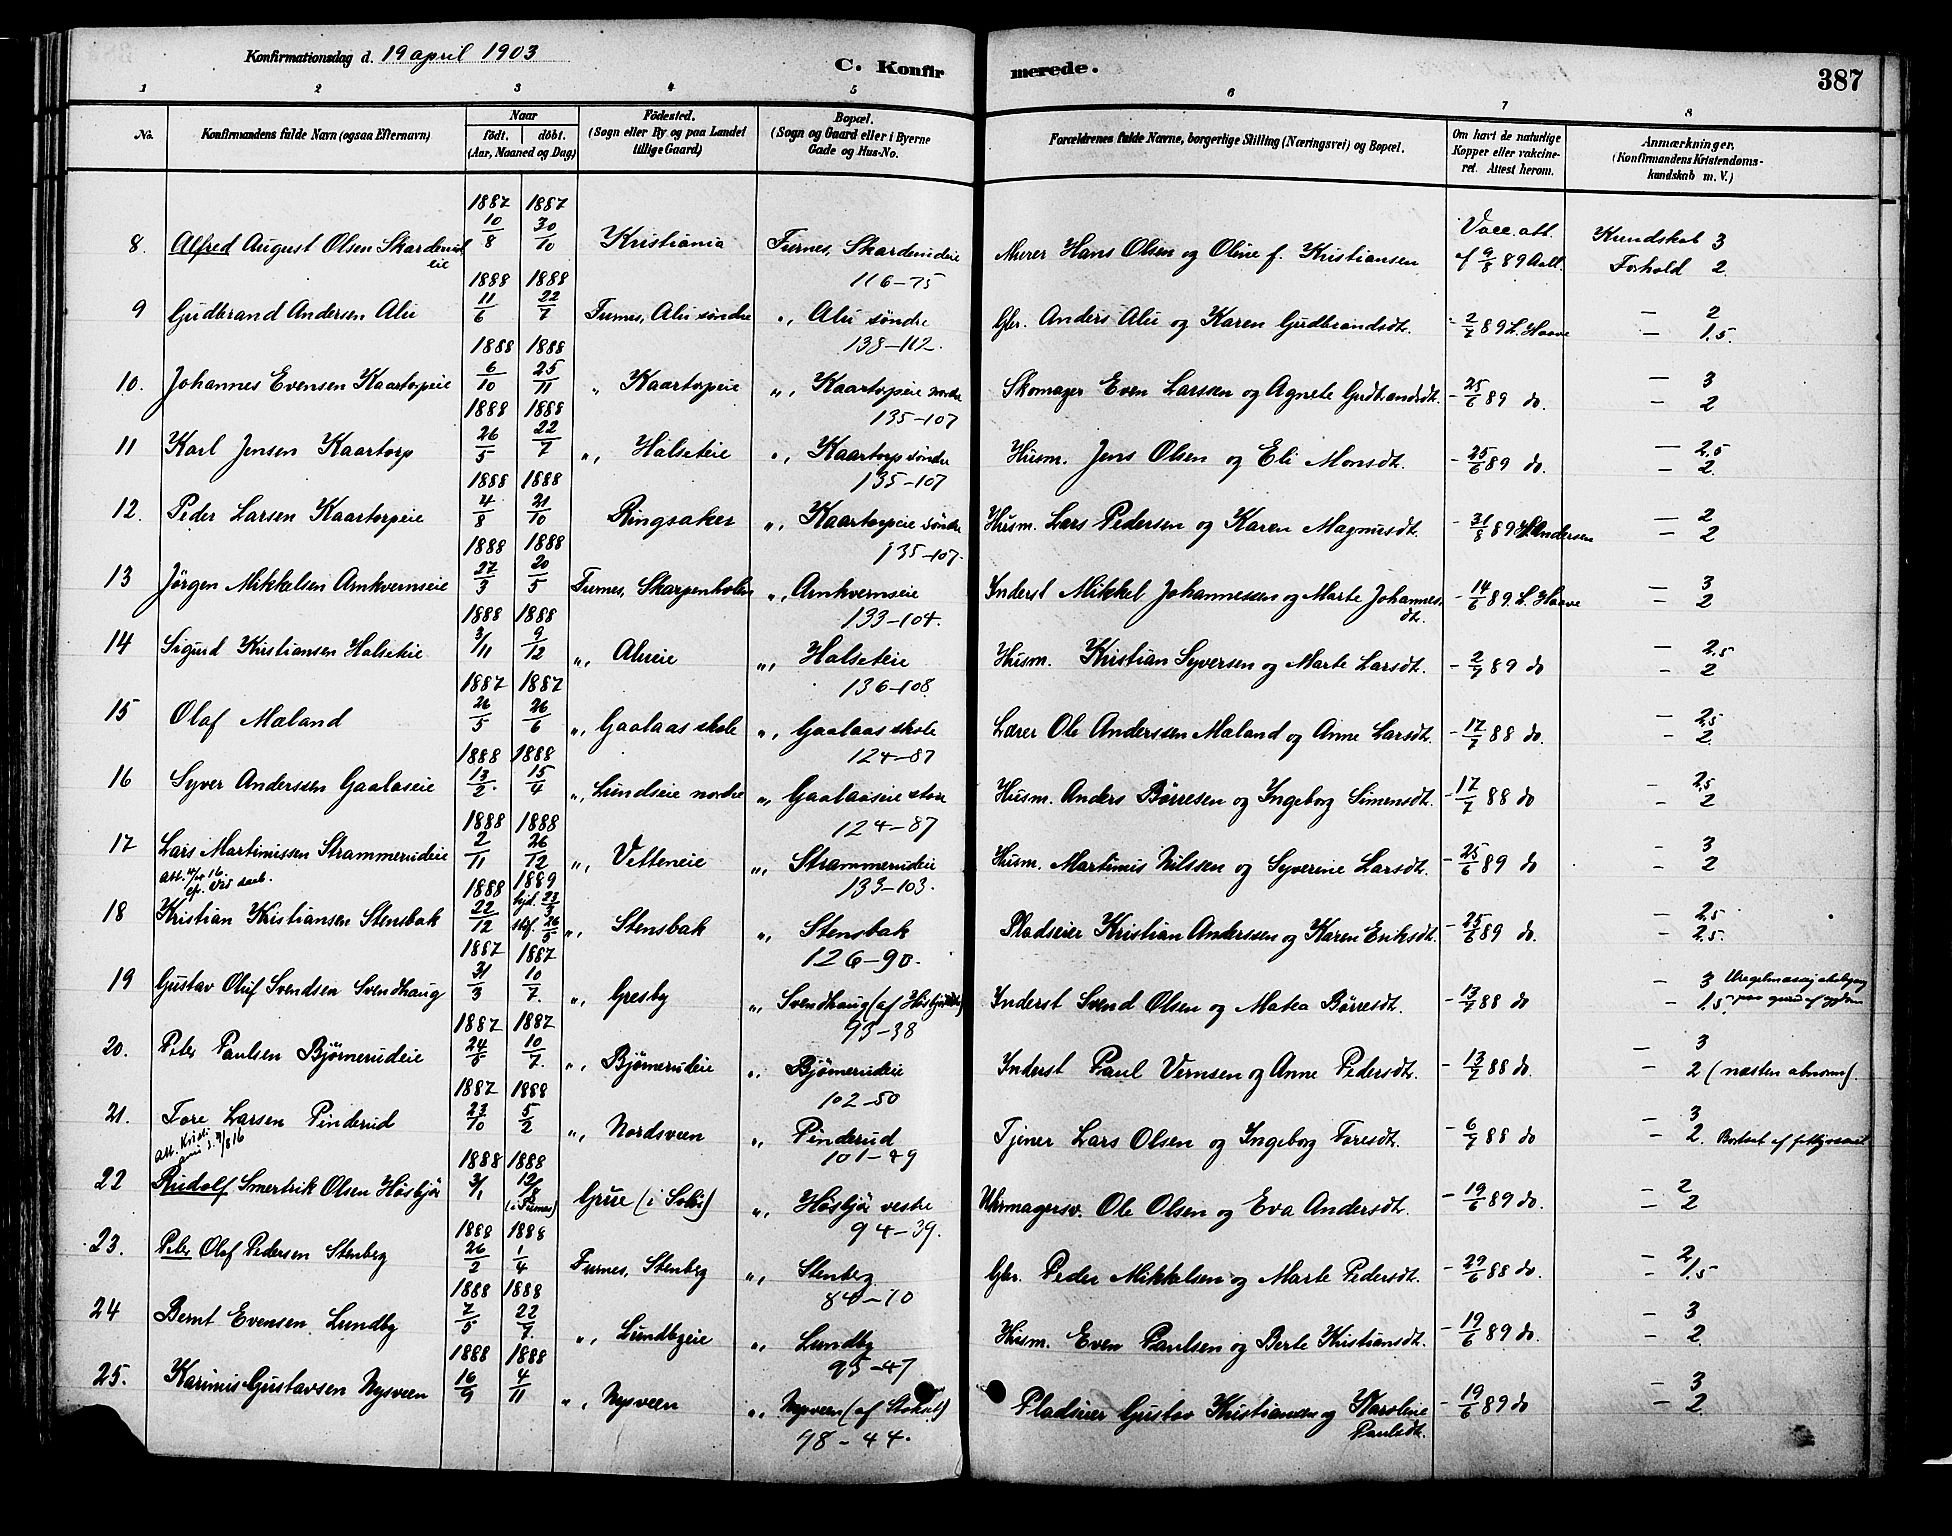 Konfirmationsdag d. 19 april 1903
C. Konfirmerede.
387
1 2 3 4 5 6 7 8
No.
Konfirmandens fulde Navn (ogsaa Efternavn)
Naar
født. døbt.
(Aar, Maaned og Dag)
Fødested.
(Sogn eller By og paa Landet
tillige Gaard)
Bopæl.
(Sogn og Gaard eller i Byerne
Gade og Hus-No.
Forældrenes fulde Navne, borgerlige Stilling (Næringsvei) og Bopæl.
Om havt de naturlige
Kopper eller vakcine-
ret. Attest herom.
Anmærkninger.
(Konfirmandens Kristendoms-
kundskab m. V.)
1887 1887
8. Alfred August Olsen Skarderud eie 10/8 30/10 Kristiania Furnes, Skarderudeie 116-75 Murer Hans Olsen og Oline f. Kristiansen Vacc. att. af 9/8 89 Kundskab 3 Forhold 2
1888 1888
9 Gudbrand Andersen Alu 11/6 22/7 Furnes, Alu søndre „ Alu søndre 138-112. Gbr. Anders Alu og Karen Gudbrandsdt. - 2/7 89 L. Haave — 2 — 1.5.
1888 1888
10. Johannes Evensen Kaartorpeie 6/10 25/11 „ Kaartorpeie „ Kaartorpeie nordre 135-107 Skomager Even Larssen og Agnete Gudbrandsdt. - 25/6 89 do. — 3 — 2
1888 1888
11 Karl Jensen Kaartorp 26/5 22/7 „ Halseteie „ Kaartorp søndre 135-107 Husm. Jens Olsen og Eli Monsdt. - 25/6 89 do. — 2,5 — 2.
1888 1888
12. Peder Larsen Kaartorpeie 4/8 21/10 Ringsaker „ Kaartorpeie søndre 135-107. Husm. Lars Pedersen og Karen Magnusdt. - 31/8 89 Andersen — 2 — 2
1888 1888
13 Jørgen Mikkelsen Arnkvernseie 27/3 20/5 Furnes, Skarpenholen „ Arnkvernseie 133-104. Inderst Mikkel Johannessen og Marte Johannes dt. - 14/6 89. L. Haave — 3 — 2
1888 1888
14 Sigurd Kristiansen Halseteie 3/11 9/12 „ Alueie „ Halseteie 136-108. Husm. Kristian Syversen og Marte Larsdt. - 2/7 89 do — 2,5 — 2
1887 1887
15 Olaf Mæland 26/5 26/6 „ Gaalaas skole „ Gaalaas skole 124-87 Lærer Ole Anderssen Mæland og Anne Larsdt. - 17/7 88 do. — 2,5 — 2.
1888 1888
16 Syver Anderssen Gaalaseie 13/2. 15/4 „ Lundseie nordre „ Gaalaaseie store 124-87 Husm. Anders Børresen og Ingeborg Simensdt. - 17/7 88 do — 2,5 — 2
1888 1888
17 Lars Martinissen Strammerudeie 2/11 26/12 „ Vetteneie „ Strammerudeie 133-103. Husm. Martinus Nilssen og Syverine Larsdt. - 25/6 89 do — 3 — 2
1888 1889
18 Kristian Kristiansen Stensbak 22/12 hjd. 23/3 stf. 26/5 „ Stensbak „ Stensbak 126-90. Pladseier Kristian Anderssen og Karen Eriksdt. - 25/6 89 do. — 2,5 — 2,5.
1887 1887
19 Gustav Oluf Svendsen Svendhaug 31/3 10/7. „ Gresby „ Svendhaug (af Høsbjør) 93-38 Inderst Svend Olsen og Matea Børresdt. - 13/7 88 do — 3 — 1.5.
1887 1887
20. Peter Paulsen Bjørnerudeie 24/5 10/7. „ Bjørnerudeie „ Bjørnerudeie 102-50 Inderst Paul Vernsen og Anne Pedersdt. - 13/7 88 do. — 3 — 2 (næsten abnorm).
1887 1888
21. Tore Larsen Pinderud 23/10 5/2 „ Nordsveen „ Pinderud 101-49 Tjener Lars Olsen og Ingeborg Toresdt. - 6/7 88 do — 3 — 2. Bortsat af fattigvæsenet
1888 1888
22 Rudolf Smertrik Olsen Høsbjør 3/1 12/8 (i Furnes) Grue (i Solør) „ Høsbjør vestre 94-39. Uhrmagersv. Ole Olsen og Eva Andersdt. - 19/6 89 do. — 2 — 2
1888 1888
23. Peter Olaf Pedersen Stenberg 26/2 1/4 Furnes, Stenberg „ Stenberg 84-10 Gbr. Peder Mikkelsen og Marte Pedersdt. - 29/6 88 do. — 2, — 1.5
1888 1888
24 Bernt Evensen Lundby 7/5 22/7. „ Lundbyeie „ Lundby 95-47 Husm. Even Paulsen og Berte Kristiansdt. - 19/6 89 do. — 3 — 2.
1888 1888
25. Karinus Gustavsen Nysveen 16/9 4/11 „ Nysveen „ Nysveen (af Stokset) 98-44. Pladseier Gustav Kristiansen og Karoline Paulsdt. - 19/6 89 do — 3 — 2.